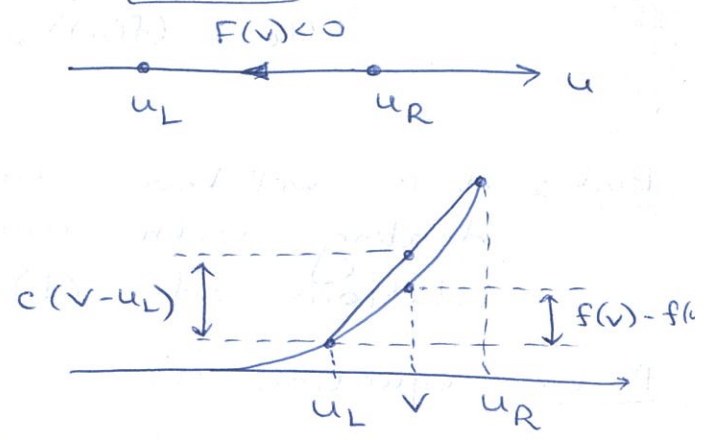 F(v)<0
u_L u_R u
c(v-u_L) f(v)-f(
u_L v u_R